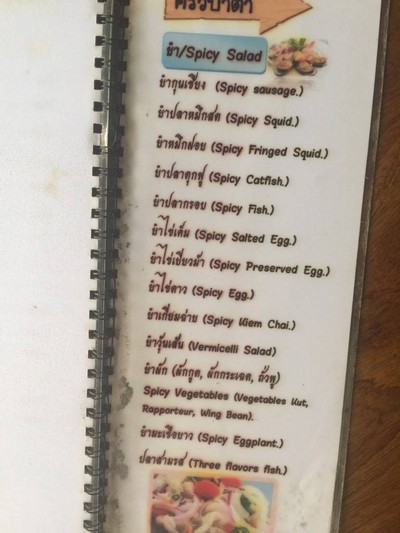 ครัวป้าดำ
ยำ/Spicy Salad
ยำกุนเชียง (Spicy sausage.)
ยำปลาหมึกสด (Spicy Squid.)
ยำหมึกฝอย (Spicy Fringed Squid.)
ยำปลาดุกฟู (Spicy Catfish.)
ยำปลากรอบ (Spicy Fish.)
ยำไข่เค็ม (Spicy Salted Egg.)
ยำไข่เยี่ยวม้า (Spicy Preserved Egg.)
ยำไข่ดาว (Spicy Egg.)
ยำเกี่ยมฉ่าย (Spicy Kiem Chai.)
ยำวุ้นเส้น (Vermicelli Salad)
ยำผัก (ผักกูด, ผักกระเฉด, ถั่วพู)
Spicy Vegetables (Vegetables Kut,
Rapporteur, Wing Bean).
ยำมะเขือยาว (Spicy Eggplant.)
ปลาสามรส (Three flavors fish.)